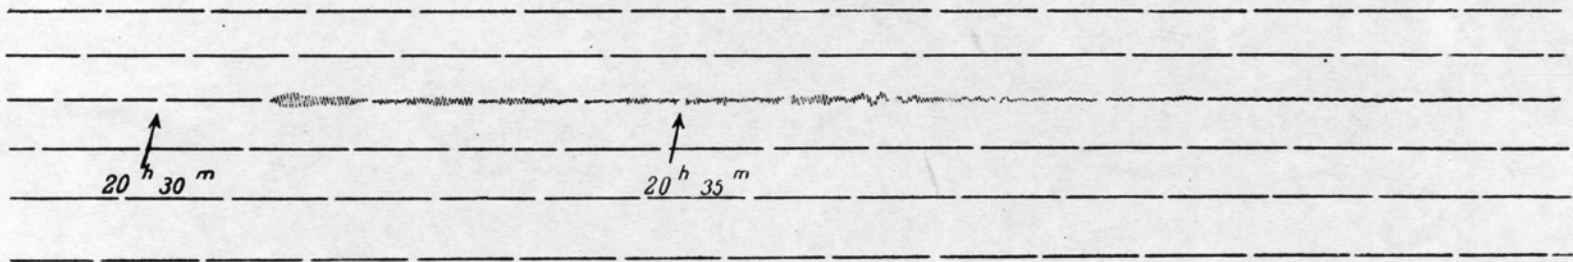 20 h 30 m
20 h 35 m